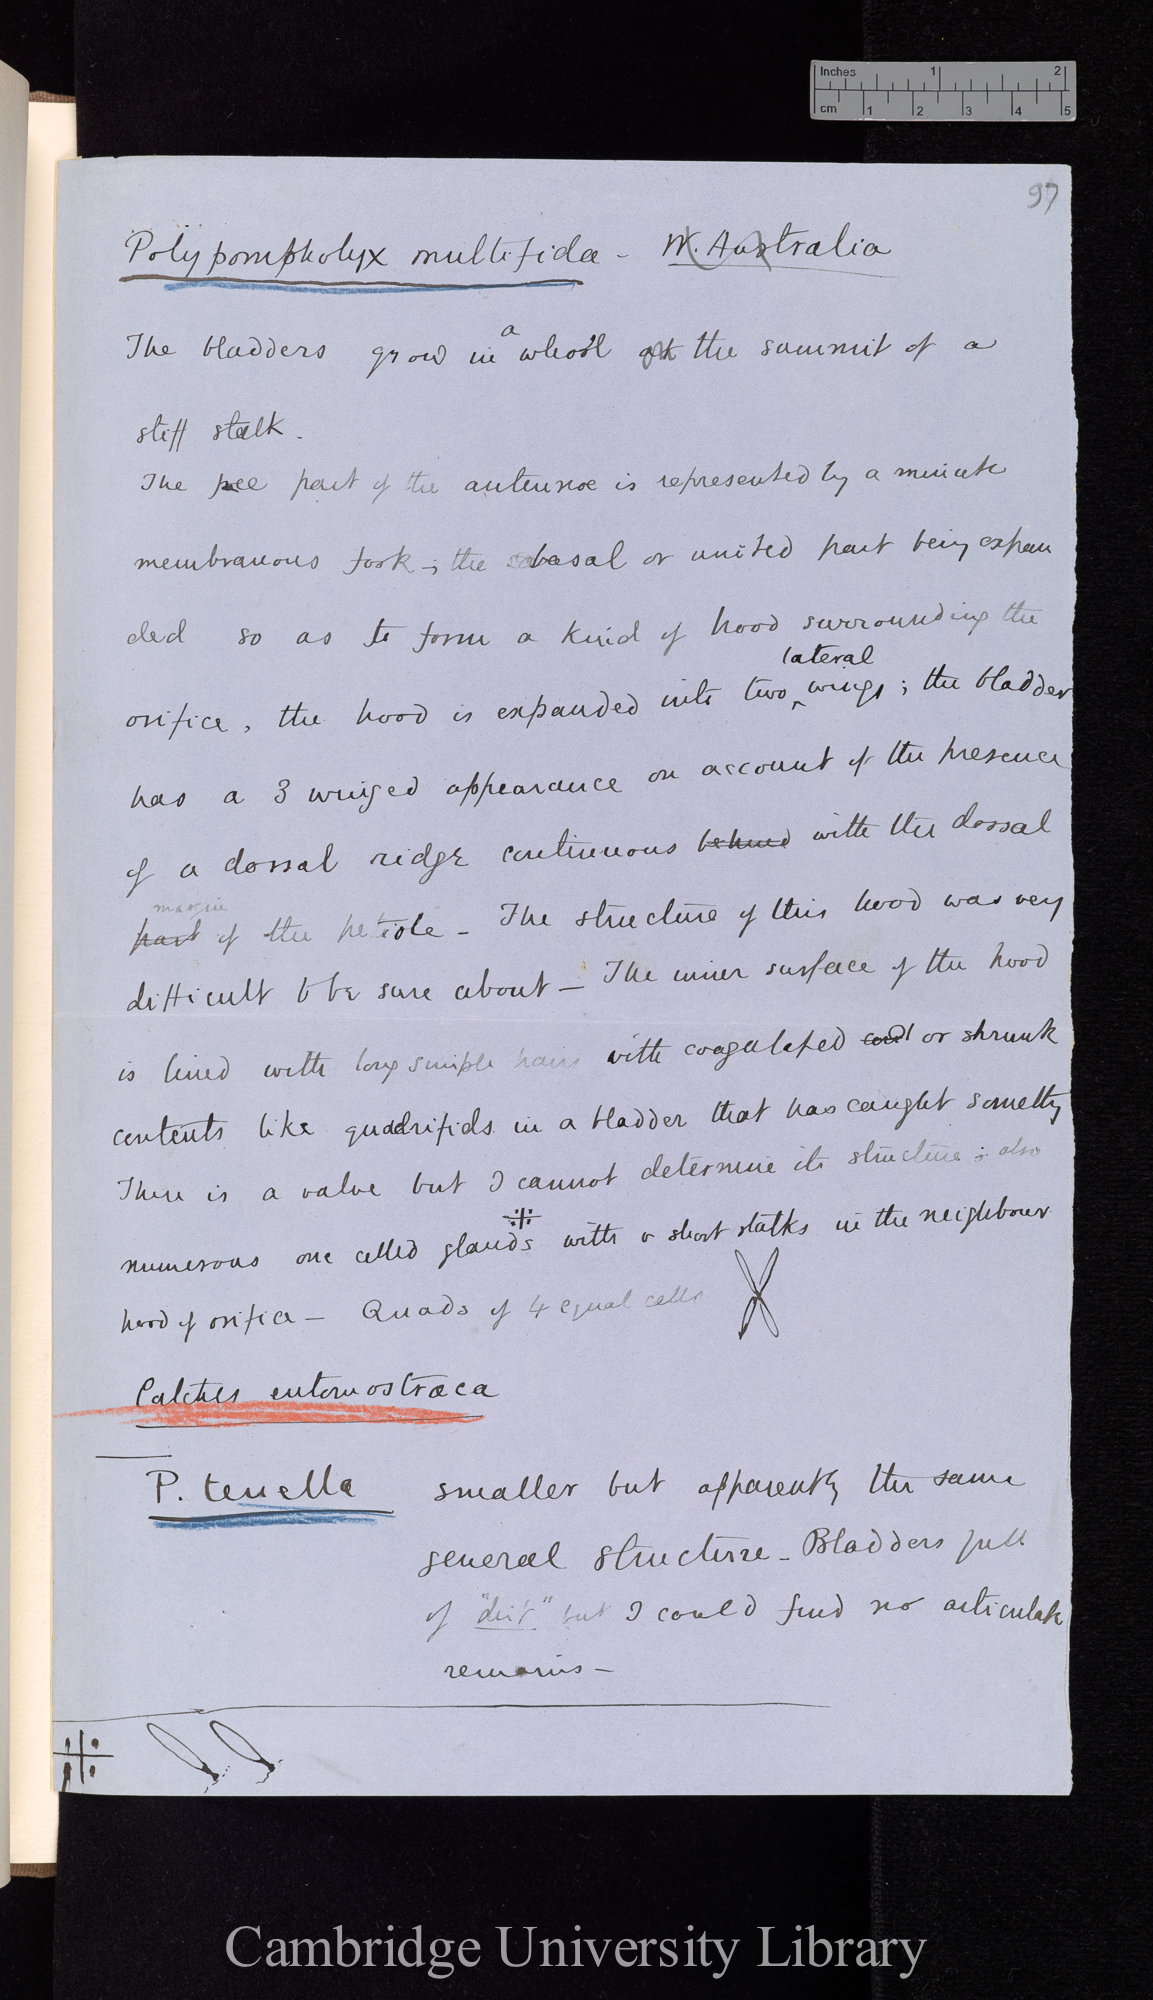 Inches 1 2
cm 1 2 3 4 5
97
Polypompholyx multifida - W. Australia
The bladders grow in a whorl at the summit of a
stiff stalk.
The free part of the antennæ is represented by a minute
membranous fork; the basal or united part being expan
ded so as to form a kind of hood surrounding the
lateral
orifice, the hood is expanded into two wings; the bladder
has a 3 winged appearance on account of the presence
of a dorsal ridge continuous behind with the dorsal
margin
part of the petiole - The structure of this hood was very
difficult to be sure about - The inner surface of the hood
is lined with long simple hairs with coagulated and or shrunk
contents like quadrifids in a bladder that has caught somethg
There is a valve but I cannot determine its structure; also
numerous one celled glands with v short stalks in the neighbour
hood of orifice - Quads of 4 equal cells
Catches entomostraca
P. tenella smaller but apparently the same
general structure - Bladders full
of "dirt" but I could find no articulate
remains -
Cambridge University Library